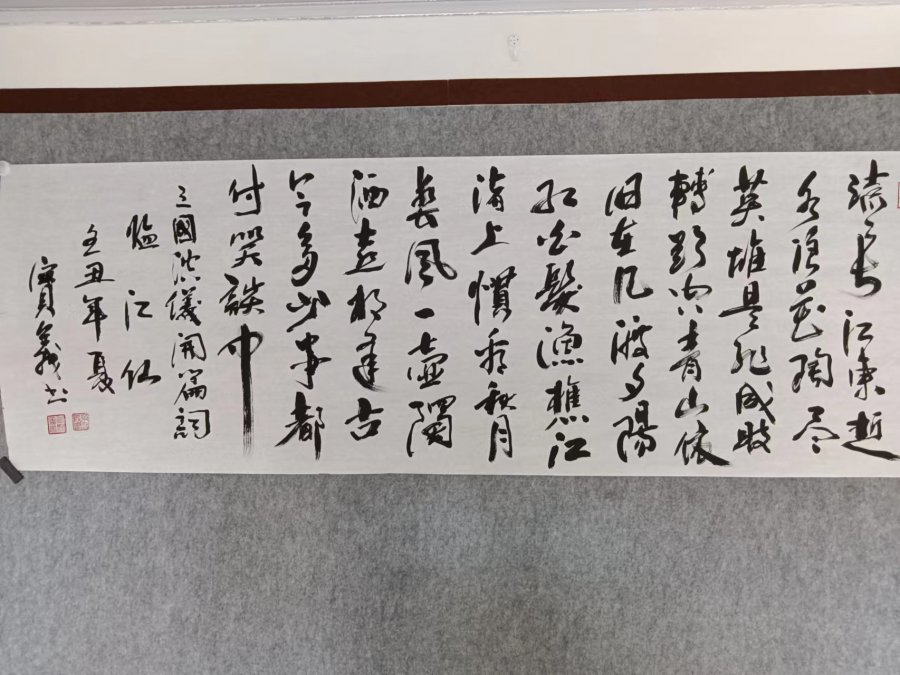 滚滚長江東逝
水浪花淘尽
英雄是非成敗
轉頭空青山依
旧在几渡夕陽
红白髮漁樵江
渚上慣看秋月
春風一壺濁
酒喜相逢古
今多少事都
付笑談中
三國演儀開篇詞
臨江仙
丑年夏
寶義书